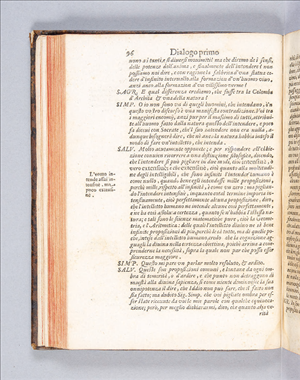 96 Dialogo primo
uomo di tanti, e sì diversi movimenti? ma che diremo de i sensi,
delle potenze dell'anima, e finalmente dell'intendere? non
possiamo noi dire, e con ragione la fabbrica d'una statua cedere
d'infinito intervallo alla formazion d'un huomo vivo,
anzi anco alla formazion d'un vilissimo verme?
SAGR. E qual differenza crediamo, che fusse tra la Colomba
d'Archita & una della natura?
SIMP. O io non sono un di quegli huomini, che intendano, ò'n
questo vostro discorso è una manifesta contradizione. Voi tra
i maggiori encomij, anzi pur per il massimo di tutti, attribuite
all'huomo fatto dalla natura questo dell'intendere, e poco
fa dicevi con Socrate, che'l suo intendere non era nulla, adunque
bisognerà dire, che nè anco la natura habbia inteso il
modo di fare un'intelletto, che intenda.
SALV. Molto acutamente opponete; e per rispondere all'obbiezione
convien ricorrere a una distinzione filosofica, dicendo,
che l'intendere si può pigliare in due modi, cioè intensivè, ò
vero extensivè: che extensivè, cioè quanto alla moltitudine
degli intelligibili, che sono infiniti l'intender humano è
come nullo, quando bene egli intendesse mille proposizioni,
perchè mille rispetto all'infinità, è come un zero: ma pigliando
l'intendere intensivè, inquanto cotal termine importa intensivamente,
cioè perfettamente alcuna proposizione, dico,
che l'intelletto humano ne intende alcune così perfettamente,
e ne ha così assoluta certezza, quanto se n'habbia l'istessa natura;
e tali sono le scienze matematiche pure, cioè la Geometria,
e l'Aritmetica: delle quali l'intelletto divino ne sà bene
infinite proposizioni di più, perchè le sà tutte, ma di quelle poche
intese dall'intelletto humano, credo che la cognizione agguagli
la divina nella certezza obiettiva, poichè arriva a comprenderne
la necessità, sopra la quale non par che possa esser
sicurezza maggiore.
SIMP. Questo mi pare un parlar molto resoluto, & ardito.
SALV. Queste son proposizioni comuni, e lontane da ogni ombra
di temerità, o d'ardire, e che punto non detraggono di
maestà alla divina sapienza; sì come niente diminuisce la sua
onnipotenza il dire, che Iddio non può fare, che il fatto non
sia fatto; ma dubito Sig. Simp. che voi pigliate ombra per esser
state ricevute da voi le mie parole con qualche equivocazione;
però, per meglio dichiararmi, dico, che quanto alla verità
L'uomo intende